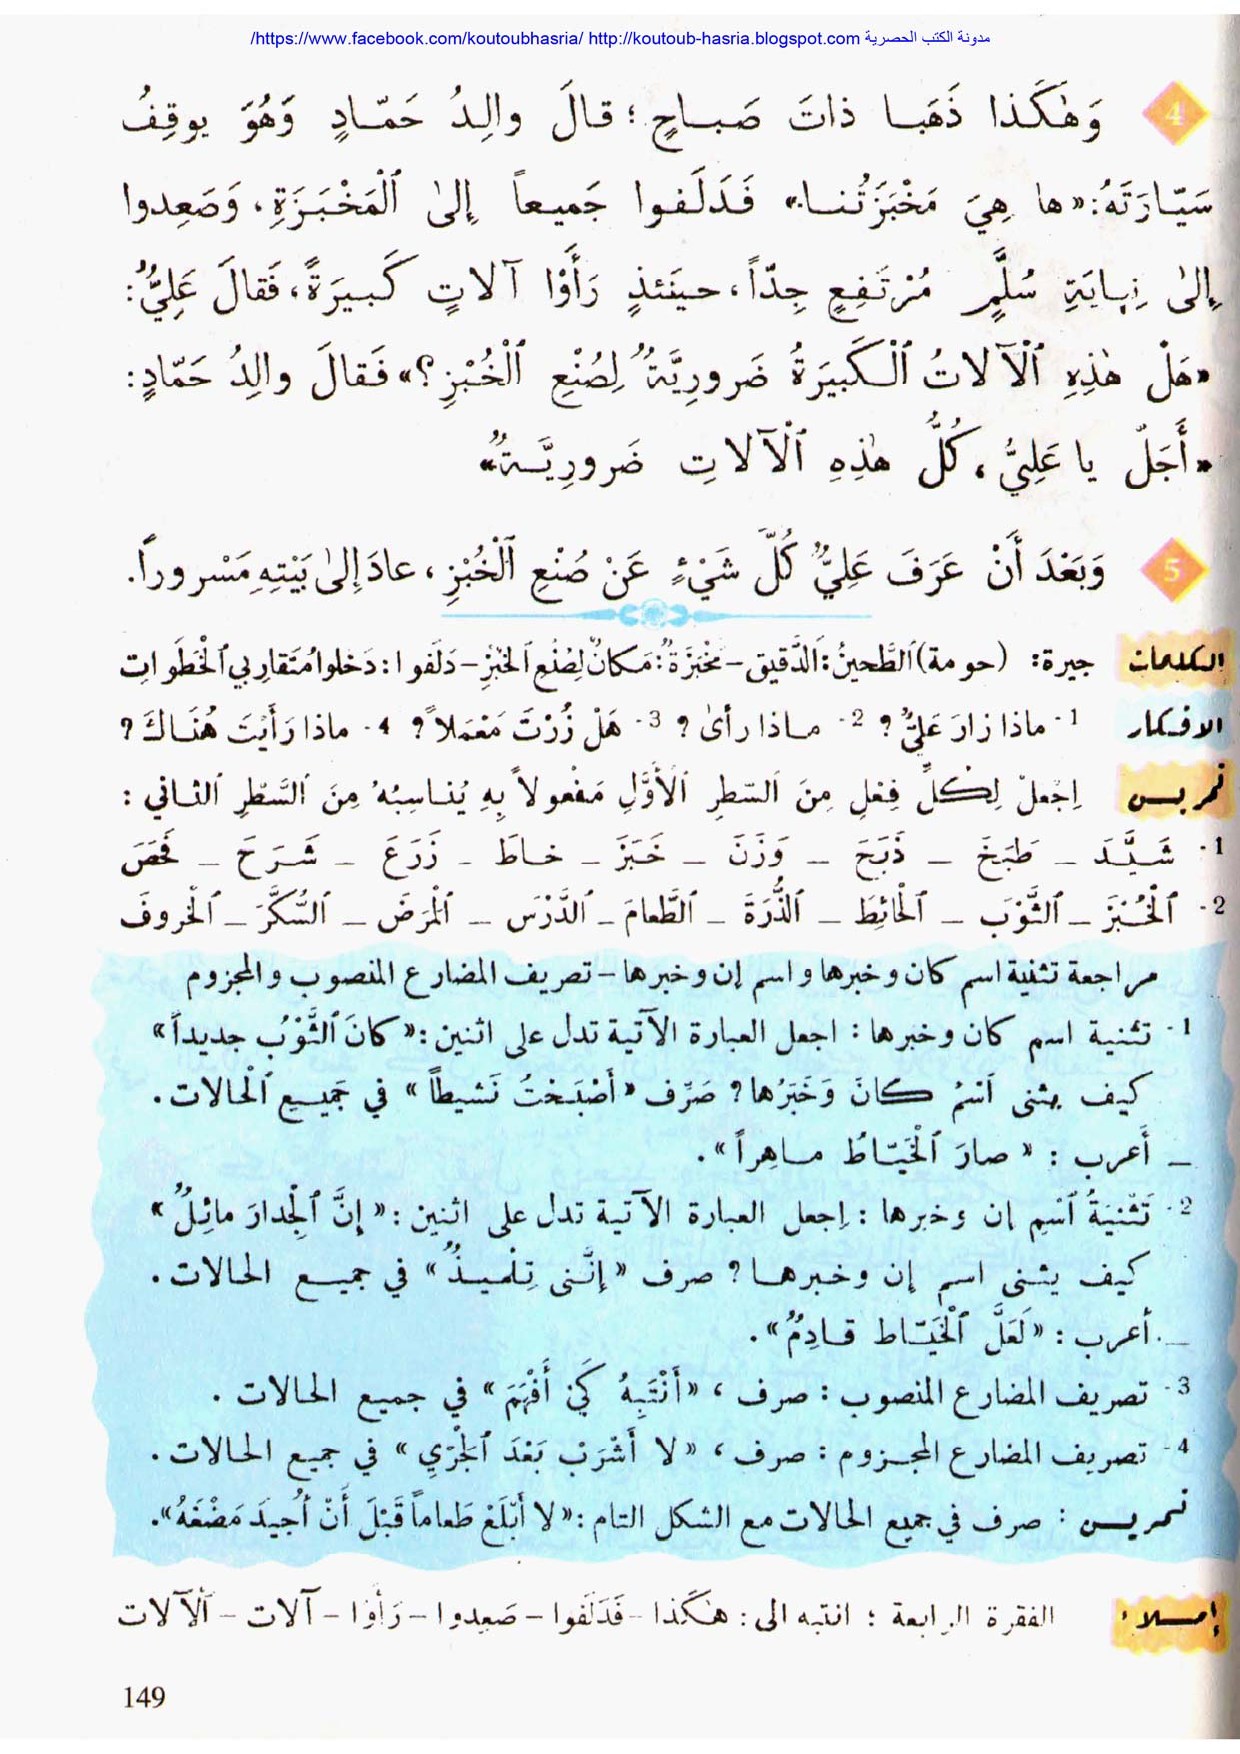 https://www.facebook.com/koutoubhasria/ http://koutoub-hasria.blogspot.com مدونة الكتب الحصرية/
4 وَهٰكَذا ذَهَبا ذاتَ صَباحٍ ؛ قالَ والِدُ حَمّادٍ وَهُوَ يوقِفُ
سَيّارَتَهُ: «ها هِيَ مَخْبَزَتُنا.» فَدَلَفوا جَميعاً إِلىٰ ٱلْمَخْبَزَةِ، وَصَعِدوا
إِلىٰ نِهايَةِ سُلَّمٍ مُرْتَفِعٍ جِدّاً، حينَئذٍ رَأَوْا آلاتٍ كَبيرَةً، فَقالَ عَلِيٌّ:
«هَلْ هٰذِهِ ٱلْآلاتُ ٱلْكَبيرَةُ ضَرورِيَّةٌ لِصُنْعِ ٱلْخُبْزِ؟» فَقالَ والِدُ حَمّادٍ:
«أَجَلْ يا عَلِيُّ، كُلُّ هٰذِهِ ٱلْآلاتِ ضَرورِيَّةٌ»
5 وَبَعْدَ أَنْ عَرَفَ عَلِيٌّ كُلَّ شَيْءٍ عَنْ صُنْعِ ٱلْخُبْزِ، عادَ إِلىٰ بَيْتِهِ مَسْروراً.
الكلمات جيرة: (حومة) ٱلطَّحينُ: ٱلدَّقيق - مَخْبَزَةٌ: مَكانٌ لِصُنْعِ ٱلْخُبْزِ - دَلَفوا: دَخلوا مُتَقارِبي ٱلْخَطَوات
الافكار 1- ماذا زارَ عَلِيٌّ؟ 2- ماذا رأىٰ؟ 3- هَلْ زُرْتَ مَعْمَلاً؟ 4- ماذا رَأَيْتَ هُنَاكَ؟
تمرين اِجْعَلْ لِكُلِّ فِعْلٍ مِنَ ٱلسَّطرِ ٱلْأَوَّلِ مَفْعولاً بِهِ يُناسِبُهُ مِنَ ٱلسَّطْرِ ٱلثاني :
1- شَيَّدَ - طَبَخَ - ذَبَحَ - وَزَنَ - خَبَزَ - خاطَ - زَرَعَ - شَرَحَ - فَحَصَ
2- ٱلْخُبْزَ - ٱلثَّوْبَ - ٱلْحائِطَ - ٱلذُّرَةَ - ٱلطَّعامَ - ٱلدَّرْسَ - ٱلْمَرَضَ - ٱلسُّكَّرَ - ٱلْخَروفَ
مراجعة تثنية اسم كان وخبرها و اسم إن وخبرها - تصريف المضارع المنصوب والمجزوم
1- تثنية اسم كان وخبرها : اجعل العبارة الآتية تدل على اثنين : «كانَ ٱلثَّوْبُ جديداً»
كيف يثنى ٱسْمُ كانَ وَخَبَرُها؟ صَرِّف «أَصْبَحْتُ نَشيطاً» في جَميعِ ٱلْحالات.
_ أَعرب : «صارَ ٱلْخَيّاطُ ماهِراً».
2- تَثْنِيَةُ ٱسْمِ إن وخبرها : اِجعل العبارة الآتية تدل على اثنين : «إِنَّ ٱلْجِدارَ مائِلٌ»
كيف يثنى اسم إن وخبرها؟ صرف «إِنَّني تِلْميذٌ» في جميع الحالات.
_ أعرب : «لَعَلَّ ٱلْخَيّاط قادِمٌ».
3- تصريف المضارع المنصوب : صرف ، «أَنْتَبِهُ كَيْ أَفْهَمَ» في جميع الحالات .
4- تصريف المضارع المجزوم : صرف ، «لا أَشْرَبْ بَعْدَ ٱلْجَرْيِ» في جميع الحالات.
تمرين : صرف في جميع الحالات مع الشكل التام : «لا أَبْلَعْ طَعاماً قَبْلَ أَنْ أُجيدَ مَضْغَهُ».
إملاء الفقرة الرابعة ؛ انتبه الى : هٰكَذا - فَدَلَفوا - صَعِدوا - رَأَوْا - آلات - ٱلْآلات
149